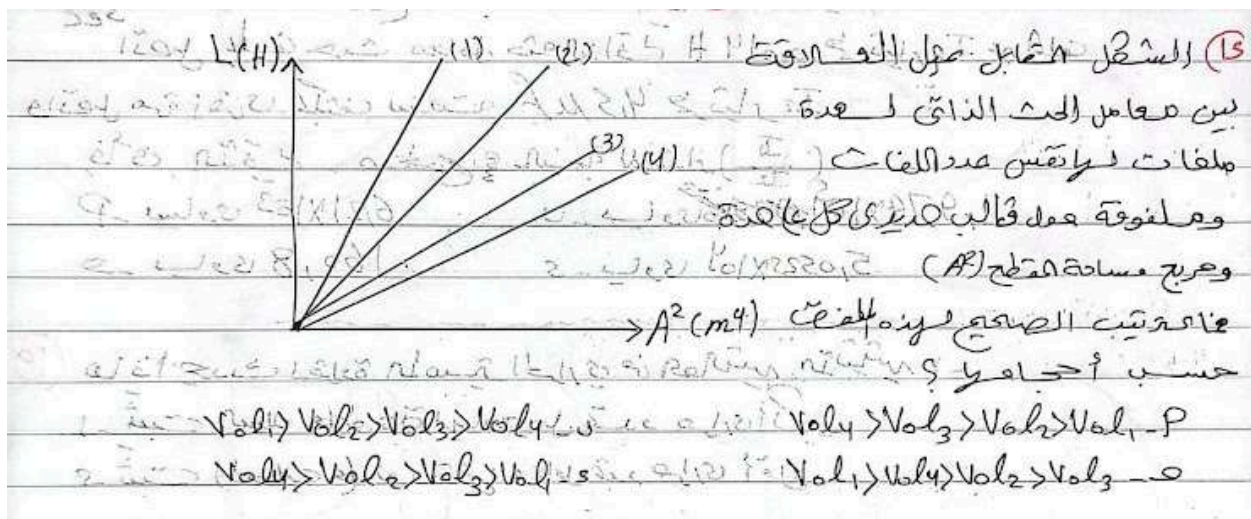 15 الشكل المقابل يمثل العلاقة
بين معامل الحث الذاتى لعدة
ملفات لها نفس عدد اللفات
وملفوفة حول قالب حديدى كل على حدة
ومربع مساحة المقطع (A²)
فما ترتيب الصحيح لهذه الملفات
حسب أحجامها ؟
L(H)
(1)
(2)
(3)
(4)
A² (m4)
P- Vol4 > Vol3 > Vol2 > Vol1
ب- Vol1 > Vol2 > Vol3 > Vol4
ج- Vol1 > Vol4 > Vol2 > Vol3
د- Vol4 > Vol2 > Vol3 > Vol1